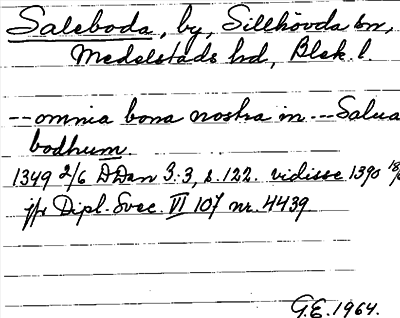 Saleboda, by, Sillhövda sn,
Medelstads hd, Blek. l.
-- omnia bona nostra in -- Salua
bodhum.
1349 2/6 DDan 3:3, s. 122. vidisse 1390 18/
jfr Dipl. Svec. VI 107 nr. 4439
G.E. 1964.